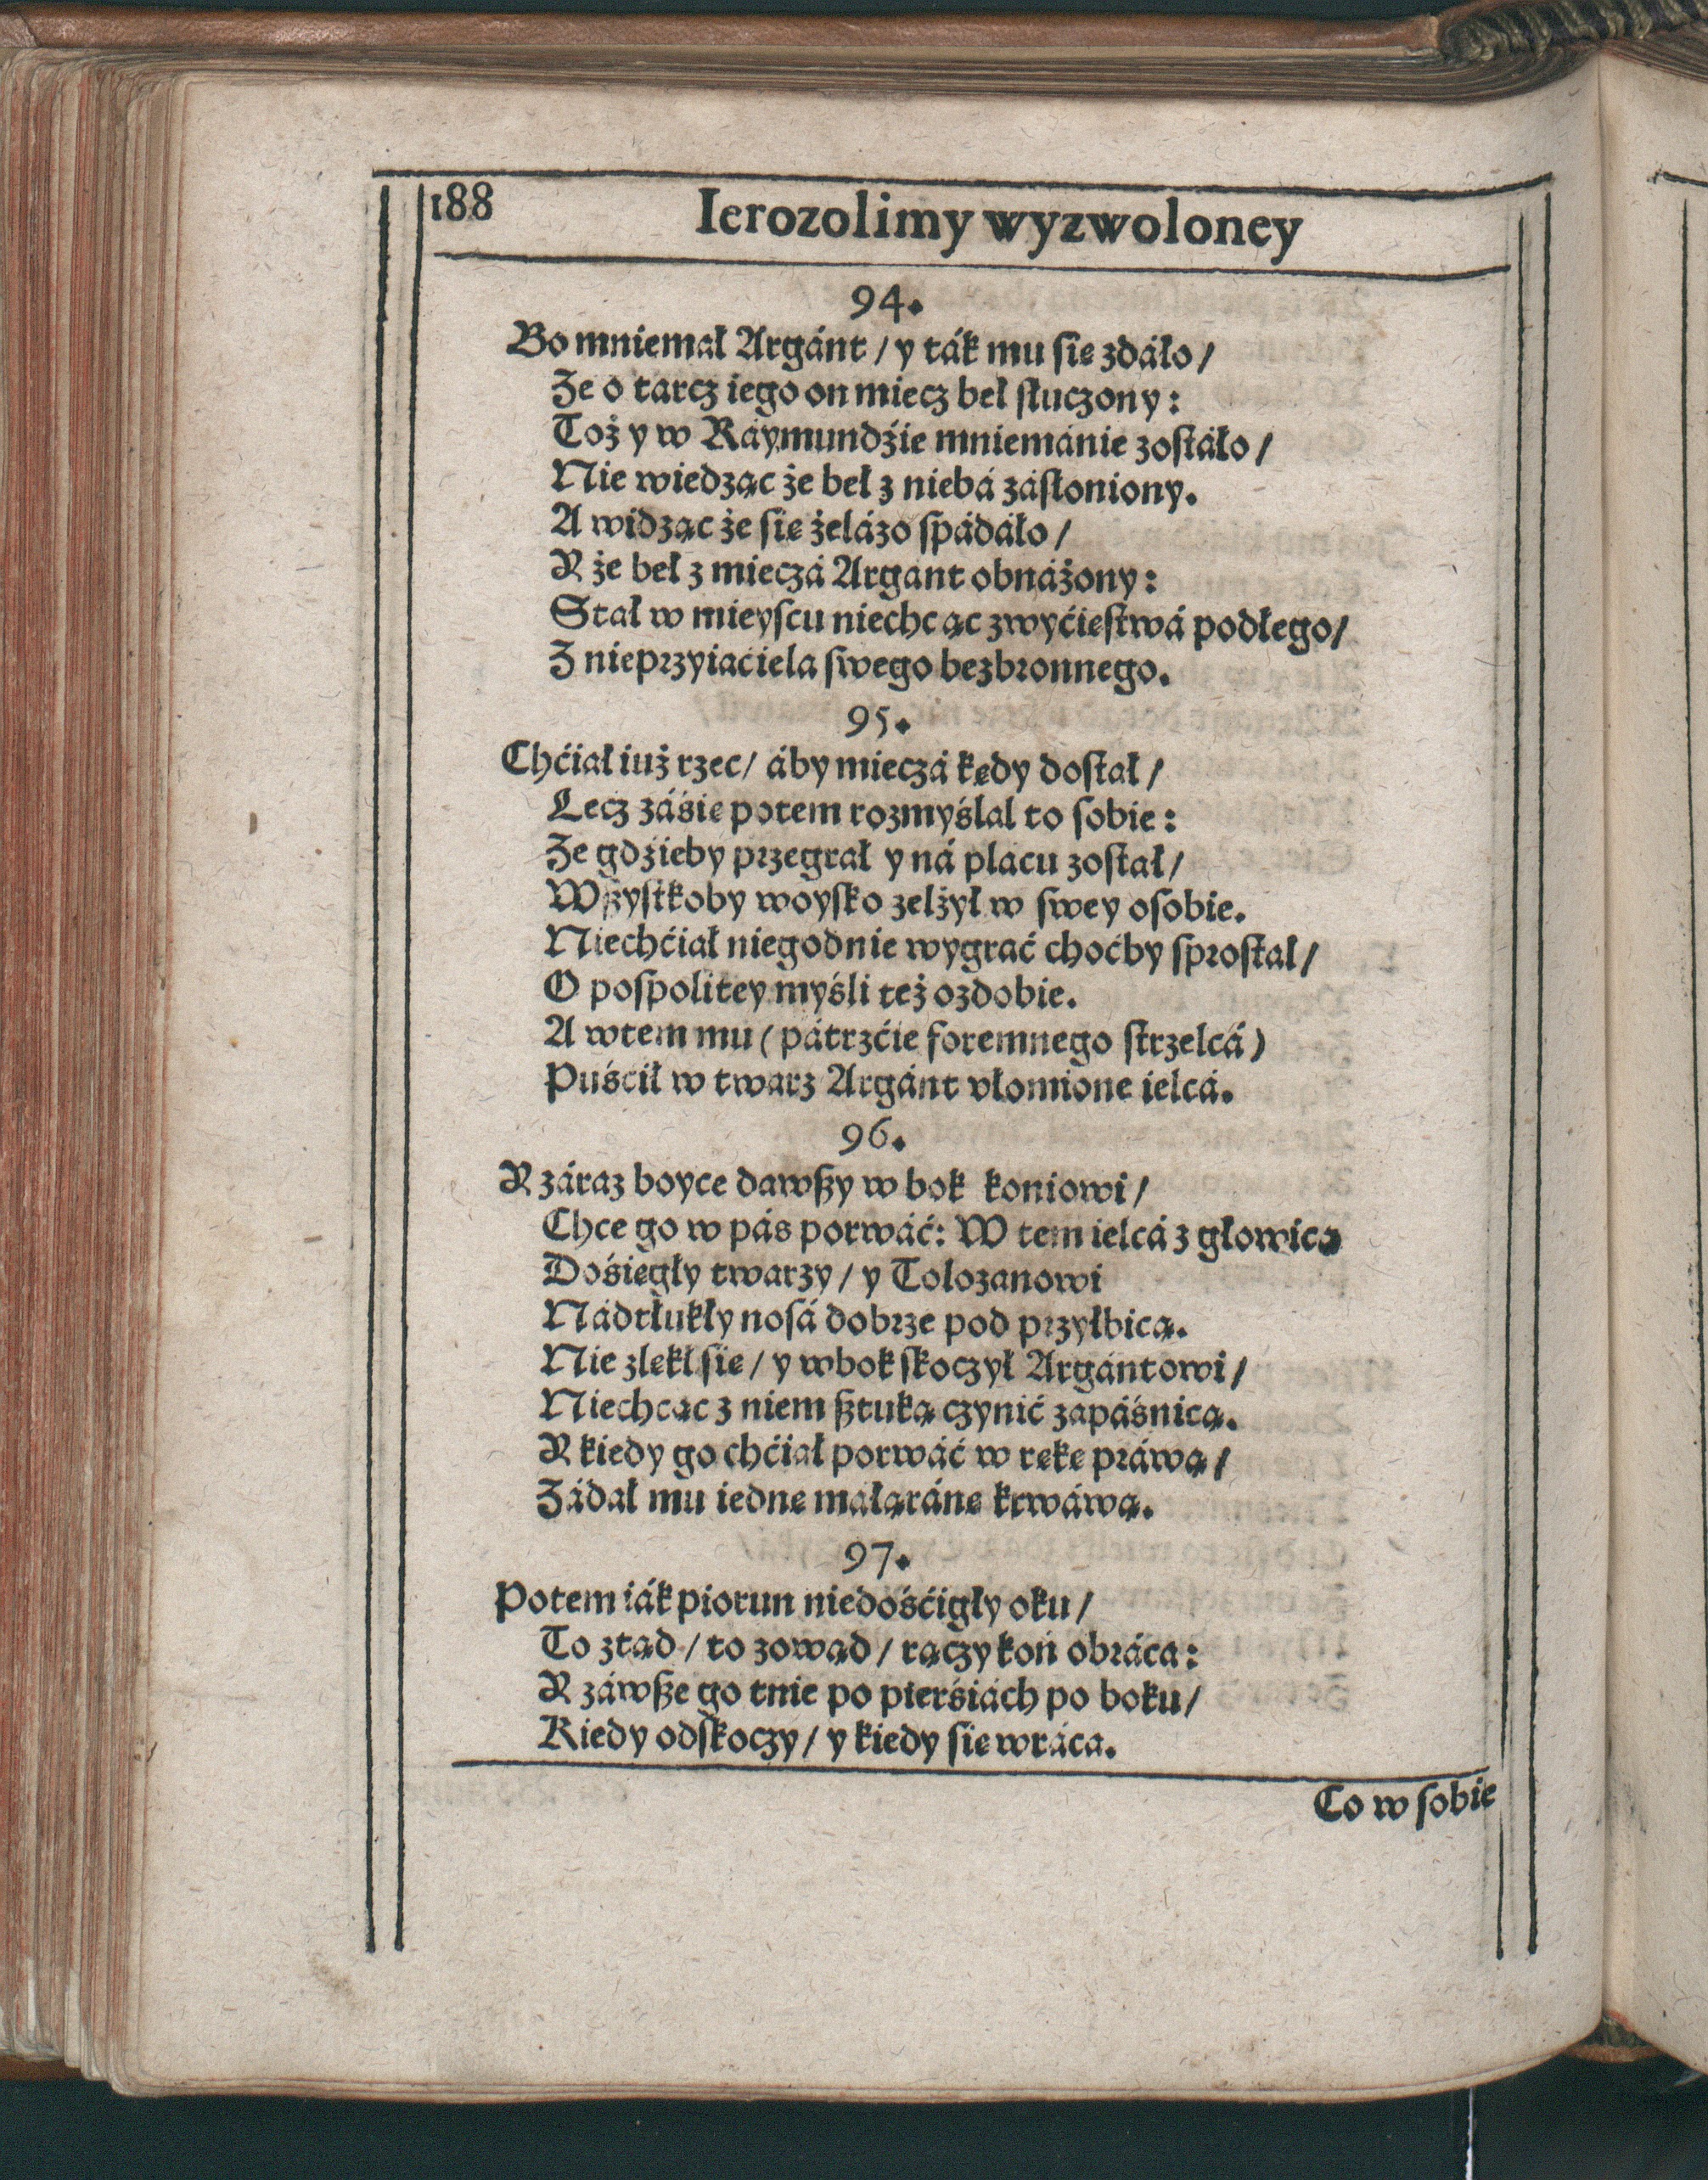 188
Ierozolimy wyzwoloney
94.
Bo mniemał Argánt / y ták mu sie zdáło /
Że o tarcz iego on miecz beł stłuczony:
Toż y w Ráymundźie mniemánie zostáło /
Nie wiedząc że beł z niebá zásłoniony.
A widząc że sie żelázo spádáło /
Y że beł z mieczá Argant obnáżony:
Stał w mieyscu niechcąc zwyćiestwá podłego /
Z nieprzyiaćiela swego bezbronnego.
95.
Chćiał iuż rzec / áby mieczá kędy dostał /
Lecz záśie potem rozmyślal to sobie:
Że gdźieby przegrał y ná placu został /
Wszystkoby woysko zelżył w swey osobie.
Niechćiał niegodnie wygrać choćby sprostal /
O pospolitey myśli też ozdobie.
A wtem mu ( pátrzćie foremnego strzelcá )
Puśćił w twarz Argánt vłomione ielcá.
96.
Y záraz boyce dawszy w bok koniowi /
Chce go w pás porwáć: W tem ielcá z głowicą
Dośiegły twarzy / y Tolozanowi
Nádtłukły nosá dobrze pod przyłbicą.
Nie zlekł sie / y wbok skoczył Argántowi /
Niechcąc z niem sztuką czynić zapáśnicą.
Y kiedy go chćiał porwáć w reke práwą /
Zádał mu iedne małą ráne krwáwą.
97.
Potem iák piorun niedośćigły oku /
To ztąd / to zowąd / rączy koń obráca:
Y záwsze go tnie po pierśiách po boku /
Kiedy odskoczy / y kiedy sie wráca.
Co w sobie